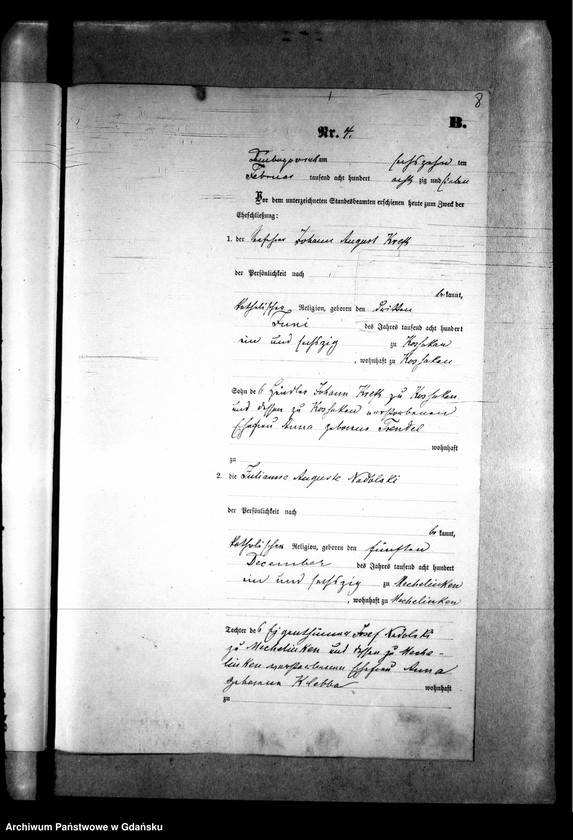 8
B.
Nr. 4.
am sechszehn ten
Februar tausend acht hundert acht zig und sieben
Vor dem unterzeichneten Standesbeamten erschienen heute zum Zweck der
Eheschließung:
1. der Johann August Kreft
der Persönlichkeit nach
be kannt,
katholischer Religion, geboren den dritten
Juni des Jahres tausend acht hundert
ein und sechszig zu Kossakau
, wohnhaft zu Kossakau
Sohn des Händler Johann Kreft zu Kossakau
und dessen zu Kossakau verstorbenen
Ehefrau Anna geborene Trendel
wohnhaft
zu
2. die Julianne Auguste Nadolski
der Persönlichkeit nach
be kannt,
katholischer Religion, geboren den fünften
December des Jahres tausend acht hundert
ein und sechszig zu Mechelinken
, wohnhaft zu Mechelinken
Tochter des Eigenthümer Josef Nadolski
zu Mechelinken und dessen zu Meche-
linken verstorbenen Ehefrau Anna
geborene Klebba wohnhaft
zu
Archiwum Państwowe w Gdańsku